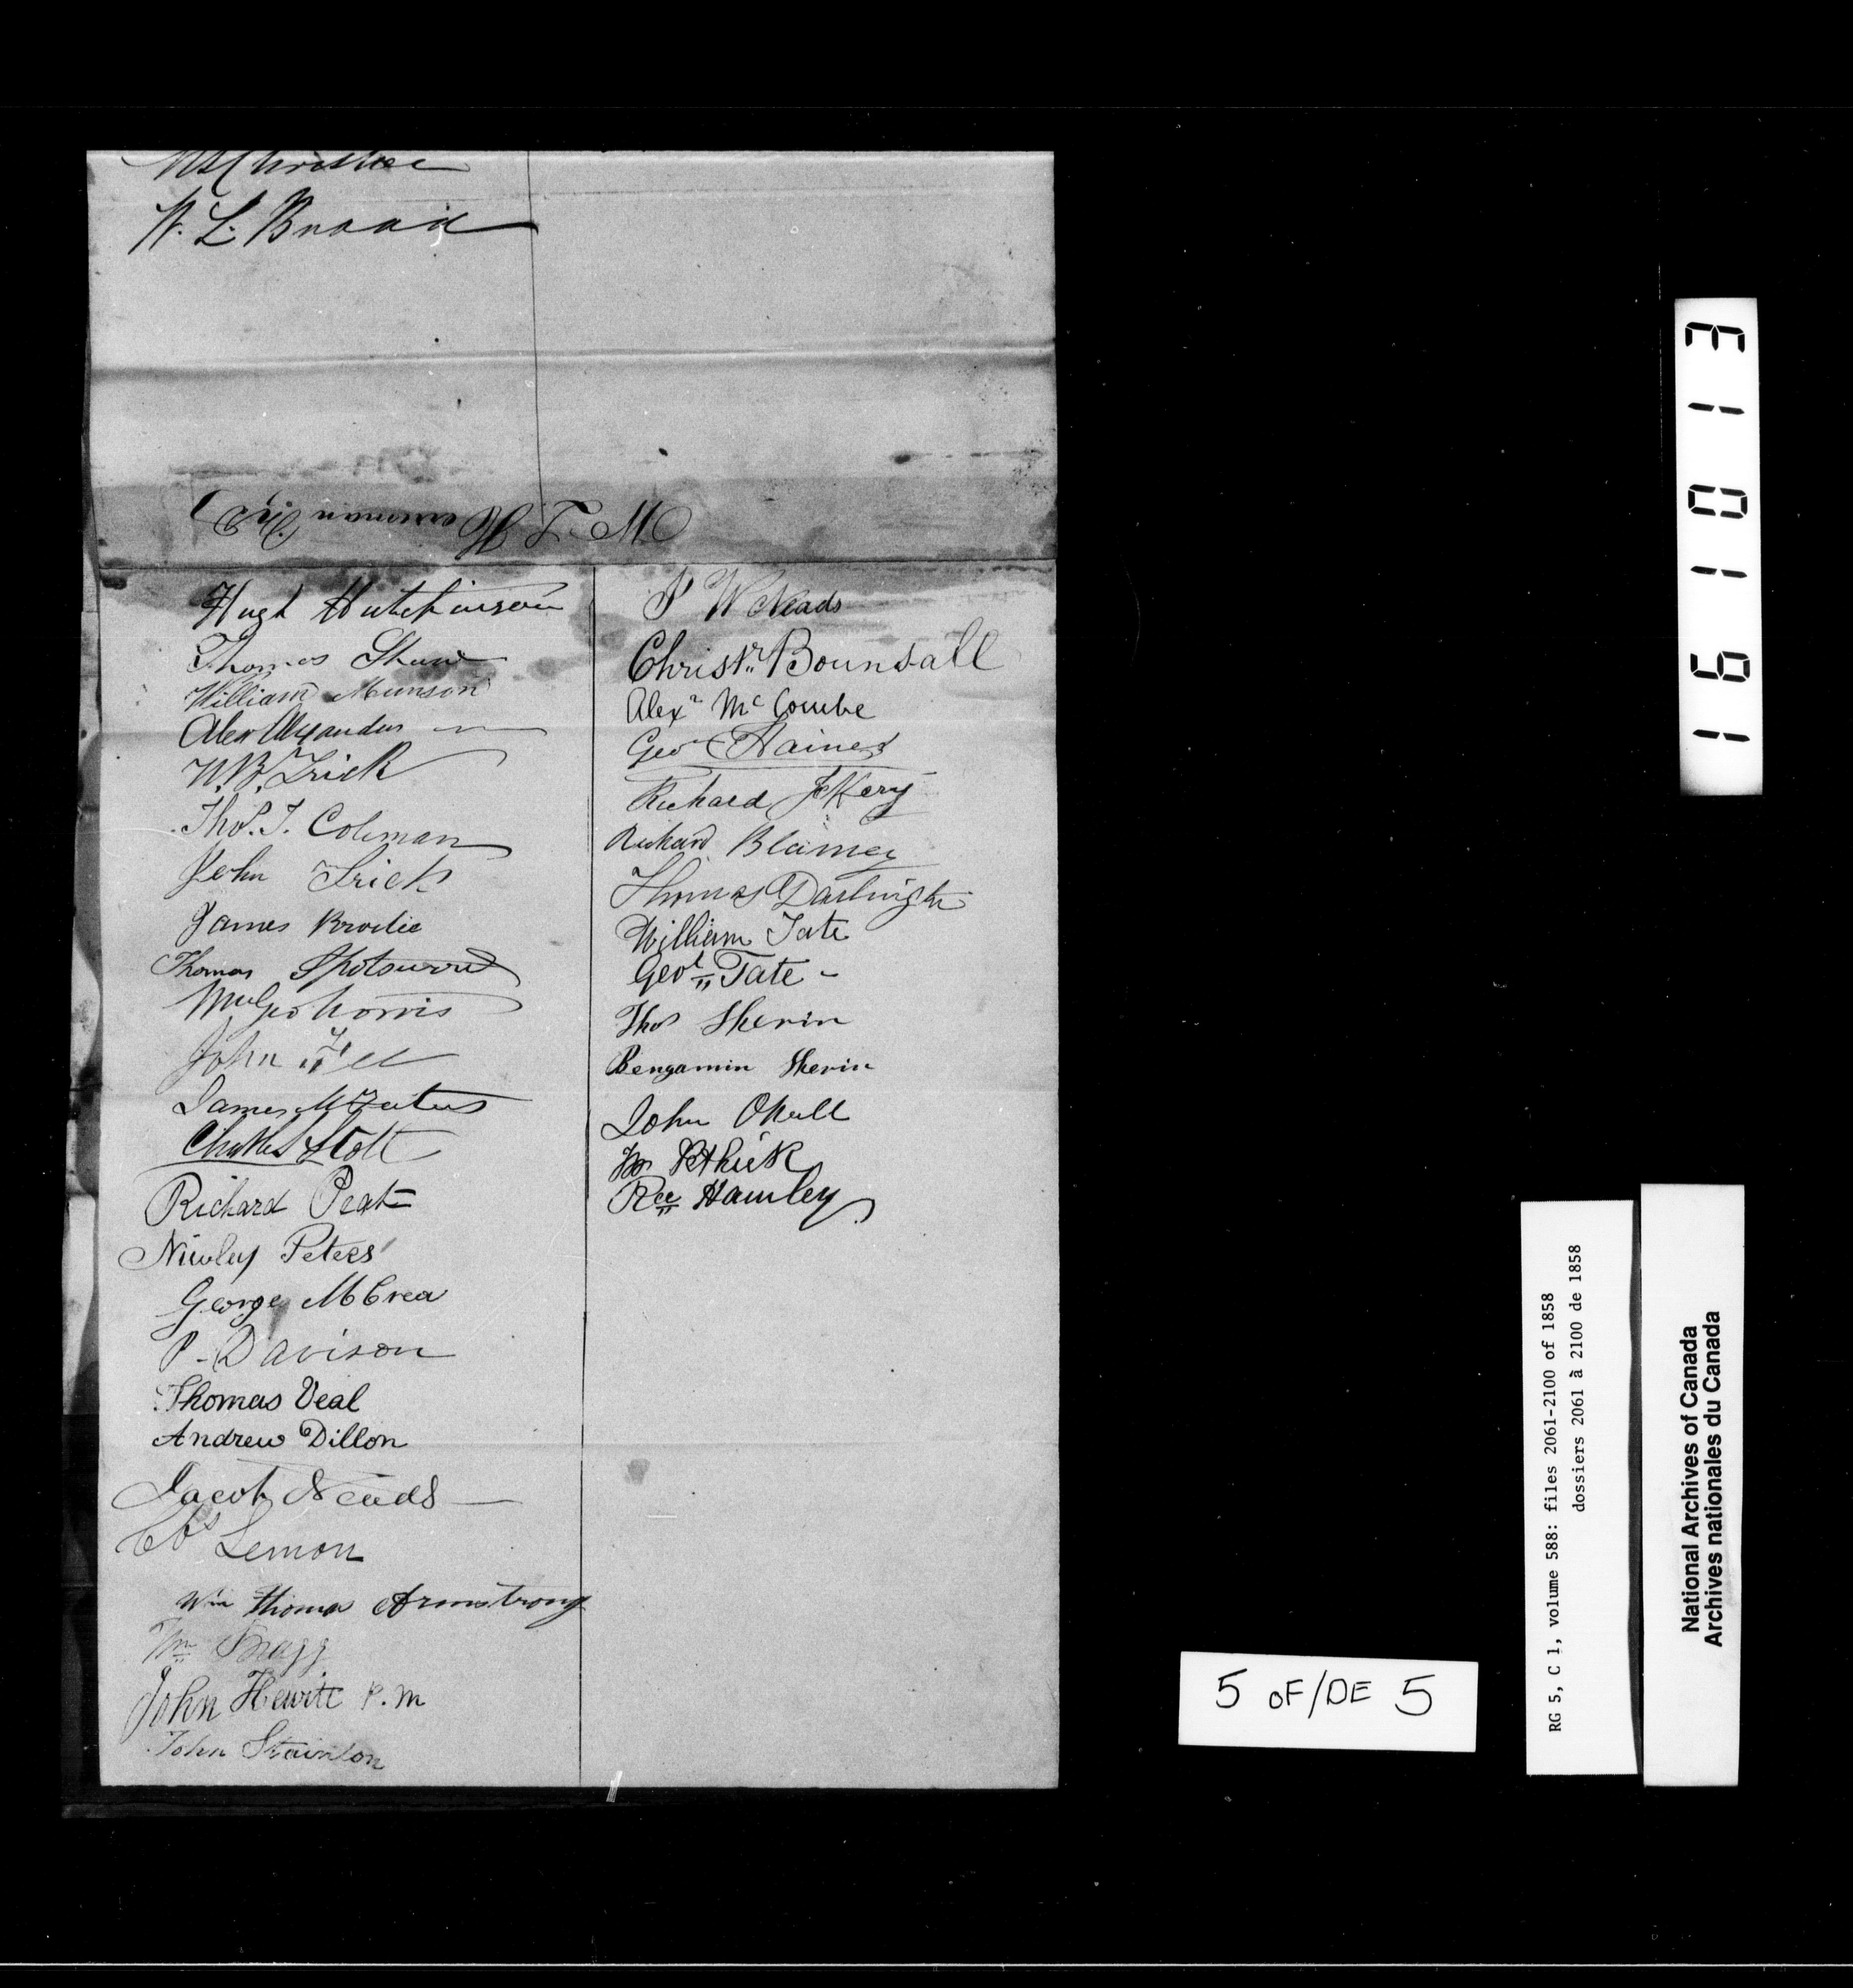 W. L. Broad
Hugh Hutchinson
Thomas Shaw
William Munson
Alex Alexander
W. B. Trick
Thos. T. Coleman
John Trick
James Brodie
Thomas Spotswood
Wm Geo Norris
John
James McFeeters
Charles Stott
Richard Peat
Newley Peters
George McCrea
P. Davison
Thomas Veal
Andrew Dillon
Jacob Neads
Chs Lemon
Wm Thomas Armstrong
Wm Bragg
John Hewitt P.M
John Stainton
P W Neads
Christr. Bounsall
Alexr McCombe
Geo Haines
Richard Jeffery
Richard Blamey
Thomas Darlington
William Tate
Geo Tate
Thos Sherin
Bengamin Sherin
John Okell
Pethick
Hawley
161013
5 OF/DE 5
RG 5, C 1, volume 588: files 2061-2100 of 1858
dossiers 2061 à 2100 de 1858
National Archives of Canada
Archives nationales du Canada